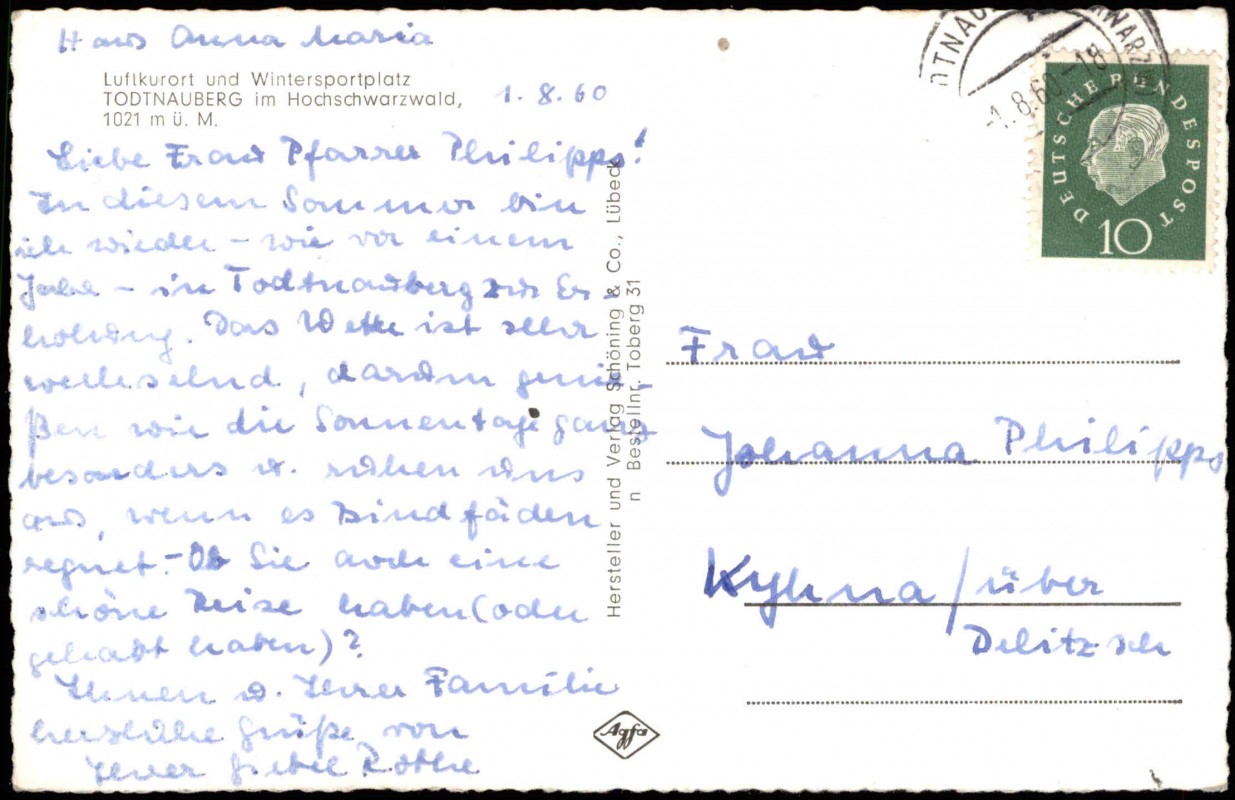 Haus Anna Maria
Luftkurort und Wintersportplatz
TODTNAUBERG im Hochschwarzwald,
1021 m ü. M.
1.8.60
Liebe Frau Pfarrer Philipps!
In diesem Sommer bin
ich wieder - wie vor einem
Jahr - in Todtnauberg zur Er-
holung. Das Wetter ist sehr
wechselnd, darum genie-
ßen wir die Sonnentage ganz
besonders u. ruhen uns
aus, wenn es Bindfäden
regnet. - Ob Sie auch eine
schöne Reise haben (oder
gehabt haben)?
Ihnen u. Ihrer Familie
herzliche Grüße von
Ihrer Rothe
Hersteller und Verlag Schöning & Co., Lübeck
n Bestellnr. Toberg 31
Agfa
-1.8.60-18
DEUTSCHE BUNDESPOST
10
Frau
Johanna Philipps
Kyhna / über
Delitzsch